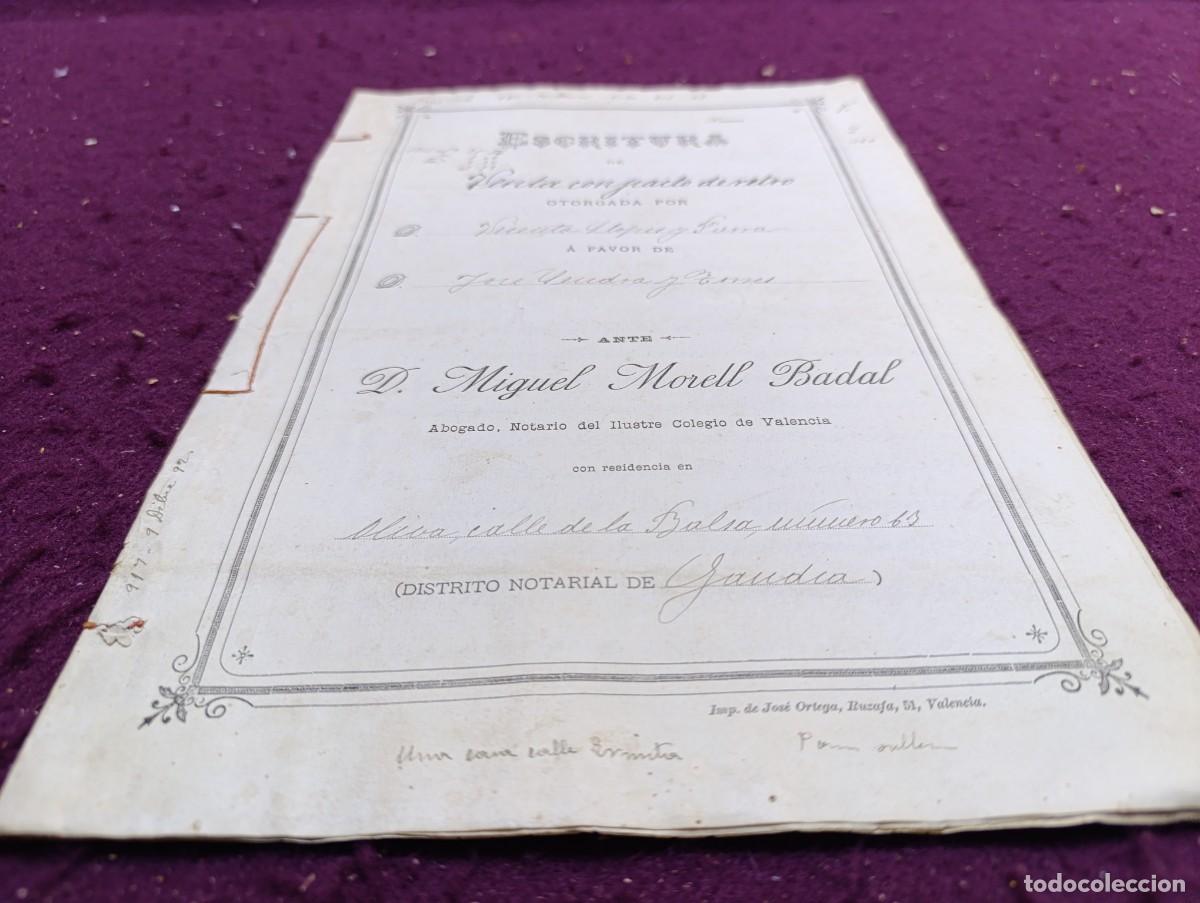 ESCRITURA
DE
Venta con pacto de retro
OTORGADA POR
D. Vicenta Llopis y
Á FAVOR DE
D. José y
ANTE
D. Miguel Morell Badal
Abogado, Notario del Ilustre Colegio de Valencia
con residencia en
Oliva, calle de la Balsa, número 63
(DISTRITO NOTARIAL DE Gandia)
Imp. de José Ortega, Ruzafa, 51, Valencia.
917 - 9 Dibre 92.
Una casa calle Ermita
todocoleccion